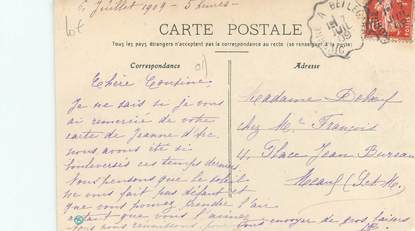 Juillet 1909 - 5 heures -
CARTE POSTALE
Tous les pays étrangers n'acceptent pas la correspondance au recto (se renseigner à la poste).
Correspondance
Adresse
Chère Cousine
Je ne sais si je vous
ai remerciée de votre
carte de Jeanne d'Arc
nous avons été si
bouleversés ces temps derniers
Nous pensons que le soleil
ne vous fait pas défaut et
que vous pouvez prendre l'air
autant que vous l'aimez
vous envoyer de gros baisers
Madame
chez Mr François
4, Place Jean
Meaux (S et M.)